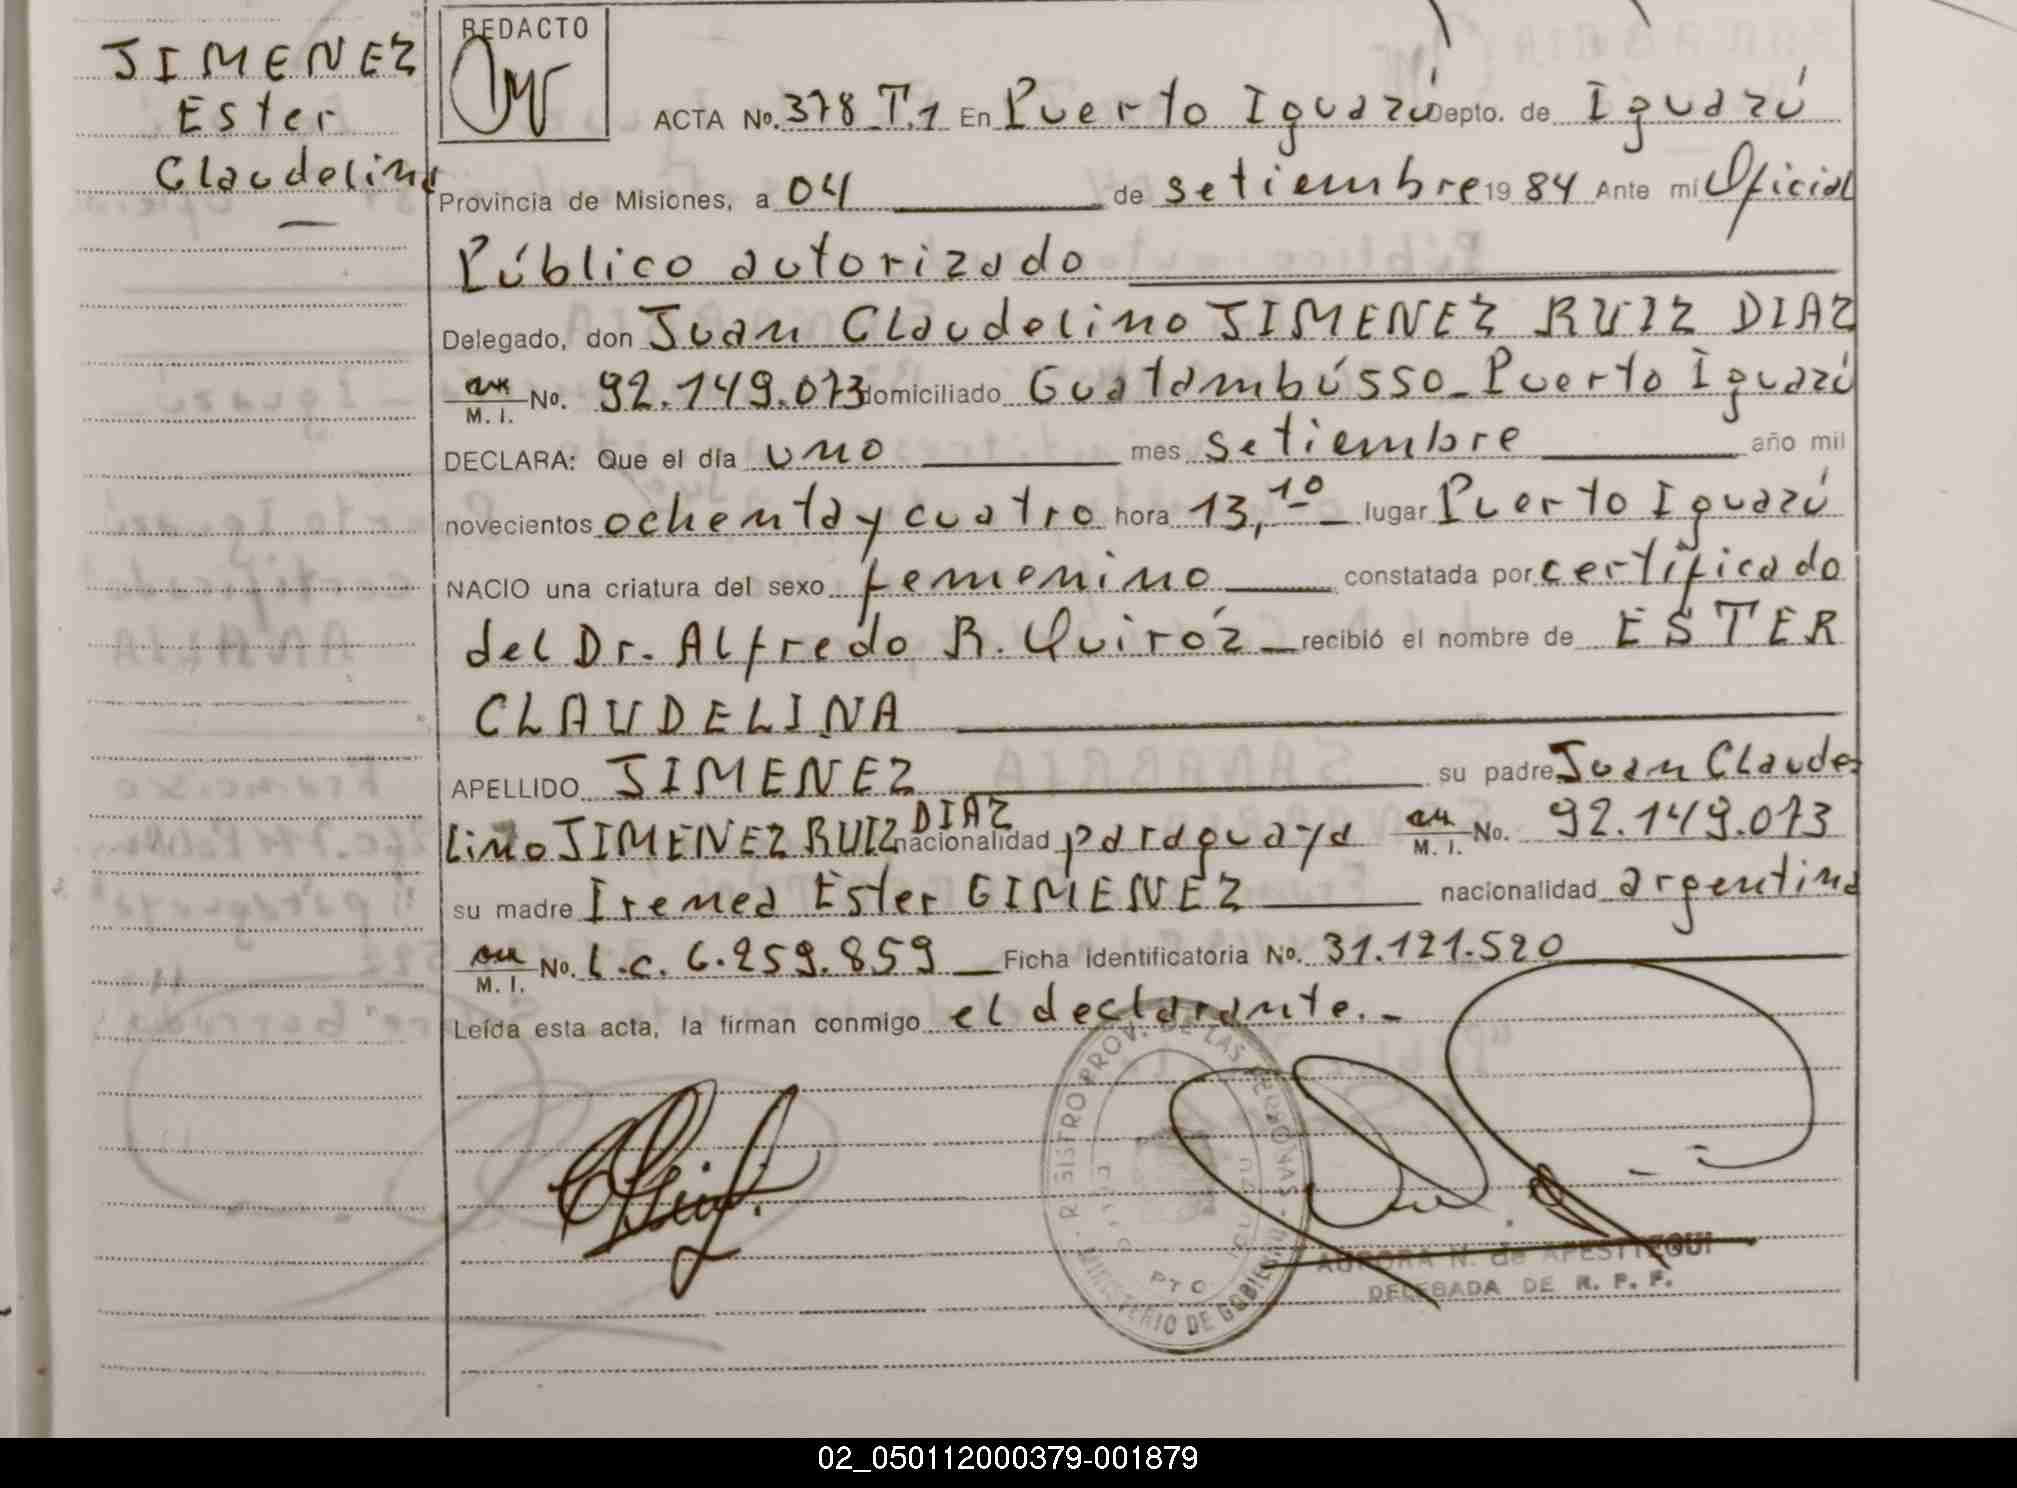 JIMENEZ
Ester
Claudelina
REDACTO
ACTA No. 378 T.1 En Puerto Iguazú Depto. de Iguazú
Provincia de Misiones, a 04 de setiembre 19 84 Ante mi Oficial
Público autorizado
Delegado, don Juan Claudelino JIMENEZ RUIZ DIAZ
M. I. No. 92.149.073 domiciliado Guatambú 550_ Puerto Iguazú
DECLARA: Que el día uno mes setiembre año mil
novecientos ochenta y cuatro hora 13,10 lugar Puerto Iguazú
NACIO una criatura del sexo femenino constatada por certificado
del Dr. Alfredo R. Quiróz recibió el nombre de ESTER
CLAUDELINA
APELLIDO JIMENEZ su padre Juan Claude-
lino JIMENEZ RUIZ DIAZ nacionalidad paraguaya M. I. No. 92.149.073
su madre Irenea Ester GIMENEZ nacionalidad argentina
M. I. No. L.C. 6.259.859 Ficha identificatoria No. 31.121.520
Leída esta acta, la firman conmigo el declarante.-
REGISTRO PROV. DE LAS PERSONAS - MINISTERIO DE GOBIERNO
PTO
AURORA N. de APESTEGUI
DELEGADA DE R. P. P.
02_050112000379-001879